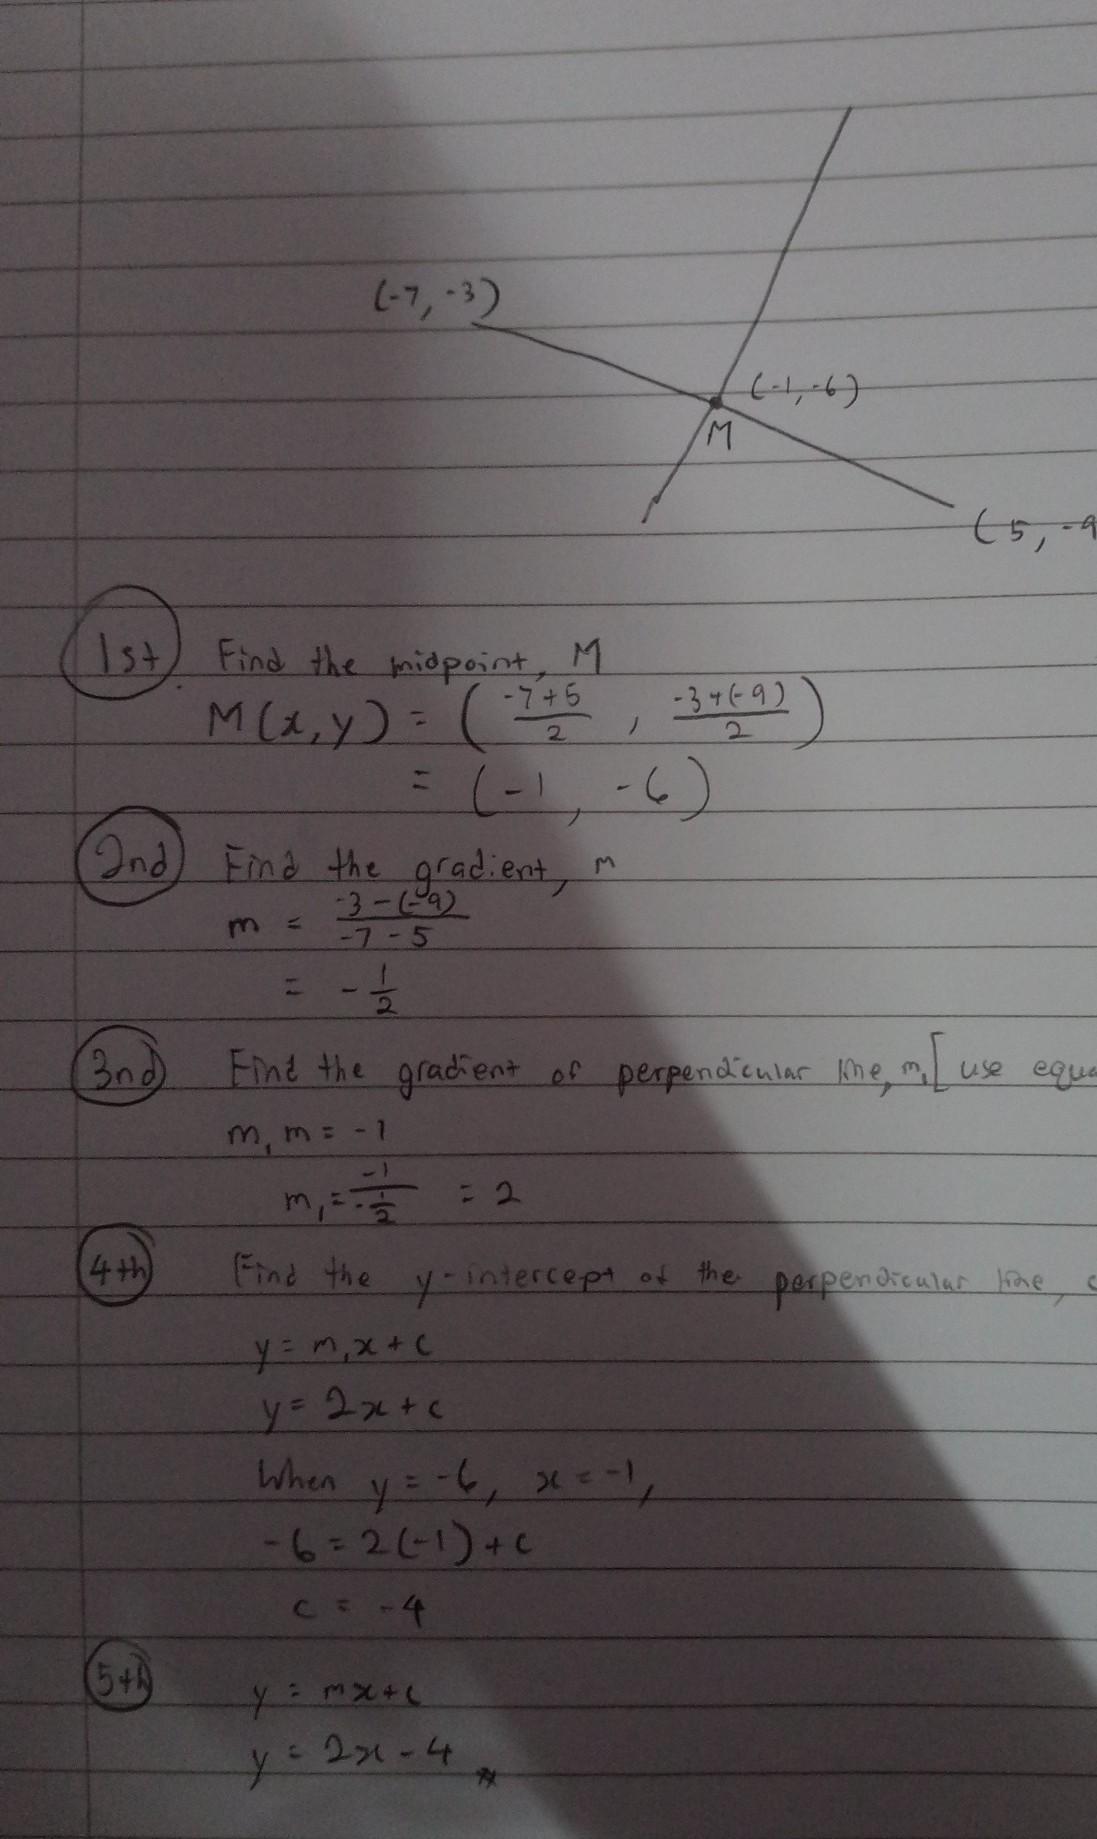 (-7, -3)
(-1, -6)
M
(5, -9
1st Find the midpoint, M
M(x, y) = ( -7+5/2 , -3+(-9)/2 )
= (-1, -6)
2nd Find the gradient, m
m = -3-(-9)/-7-5
= -1/2
3nd Find the gradient of perpendicular line, m₁ [use equa
m₁m = -1
m₁ = -1/-1/2 = 2
4th Find the y-intercept of the perpendicular line, c
y = m₁x + c
y = 2x + c
When y = -6, x = -1,
-6 = 2(-1) + c
c = -4
5th y = mx + c
y = 2x - 4